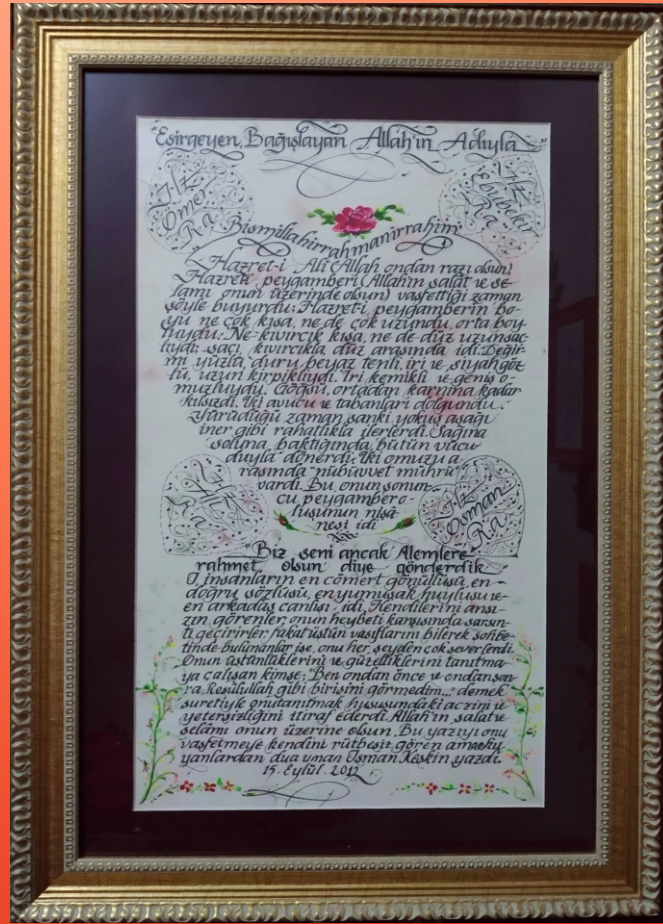 "Esirgeyen, Bağışlayan Allah'ın Adıyla"
Hz
Ömer
Ra.
Hz
Ebubekir
Ra.
Bismillahirrahmanirrahim
Hazret-i Ali (Allah ondan razı olsun)
Hazreti peygamberi (Allahın salat ve se-
lamı onun üzerinde olsun) vasfettiği zaman
şöyle buyurdu: Hazret-i peygamberin bo-
yu ne çok kısa, ne de çok uzundu, orta boy
luydu. Ne kıvırcık kısa, ne de düz uzunsaç
lıydı; saçı, kıvırcıkla düz arasında idi. Değir
mi yüzlü, duru beyaz tenli, iri ve siyah göz
lü, uzun kirpikliydi. İri kemikli ve geniş o-
muzluydu. Göğsü, ortadan karnına kadar
kılsızdı. İki avucu ve tabanları dolgundu.
Yürüdüğü zaman sanki yokuş aşağı
iner gibi rahatlıkla ilerlerdi. Sağına
soluna, baktığında, bütün vücu-
duyla dönerdi. İki omuzu a
rasında "nübüvvet mührü"
vardı. Bu, onun sonun-
cu peygamber o-
luşunun nişa
nesi idi
Hz
Ali
Ra.
Hz
Osman
Ra.
"Biz seni ancak Alemlere
rahmet olsun diye gönderdik"
O, insanların en cömert gönüllüsü, en-
doğru sözlüsü, en yumuşak huylusu ve-
en arkadaş canlısı idi. Kendilerini ansı-
zın görenler, onun heybeti karşısında sarsın-
tı geçirirler, fakat üstün vasıflarını bilerek sohbe-
tinde bulunanlar ise, onu her şeyden çok severlerdi.
Onun üstünlüklerini ve güzelliklerini tanıtma-
ya çalışan kimse; "Ben ondan önce ve ondan son-
ra, Resülullah gibi birisini görmedim..." demek
suretiyle onu tanıtmak hususundaki aczini ve
yetersizliğini itiraf ederdi. Allah'ın salat ve
selâmı onun üzerine olsun. Bu yazıyı onu
vasfetmeye kendini rütbesiz gören ama oku
yanlardan dua uman Osman Keskin yazdı.
15. Eylül. 2012